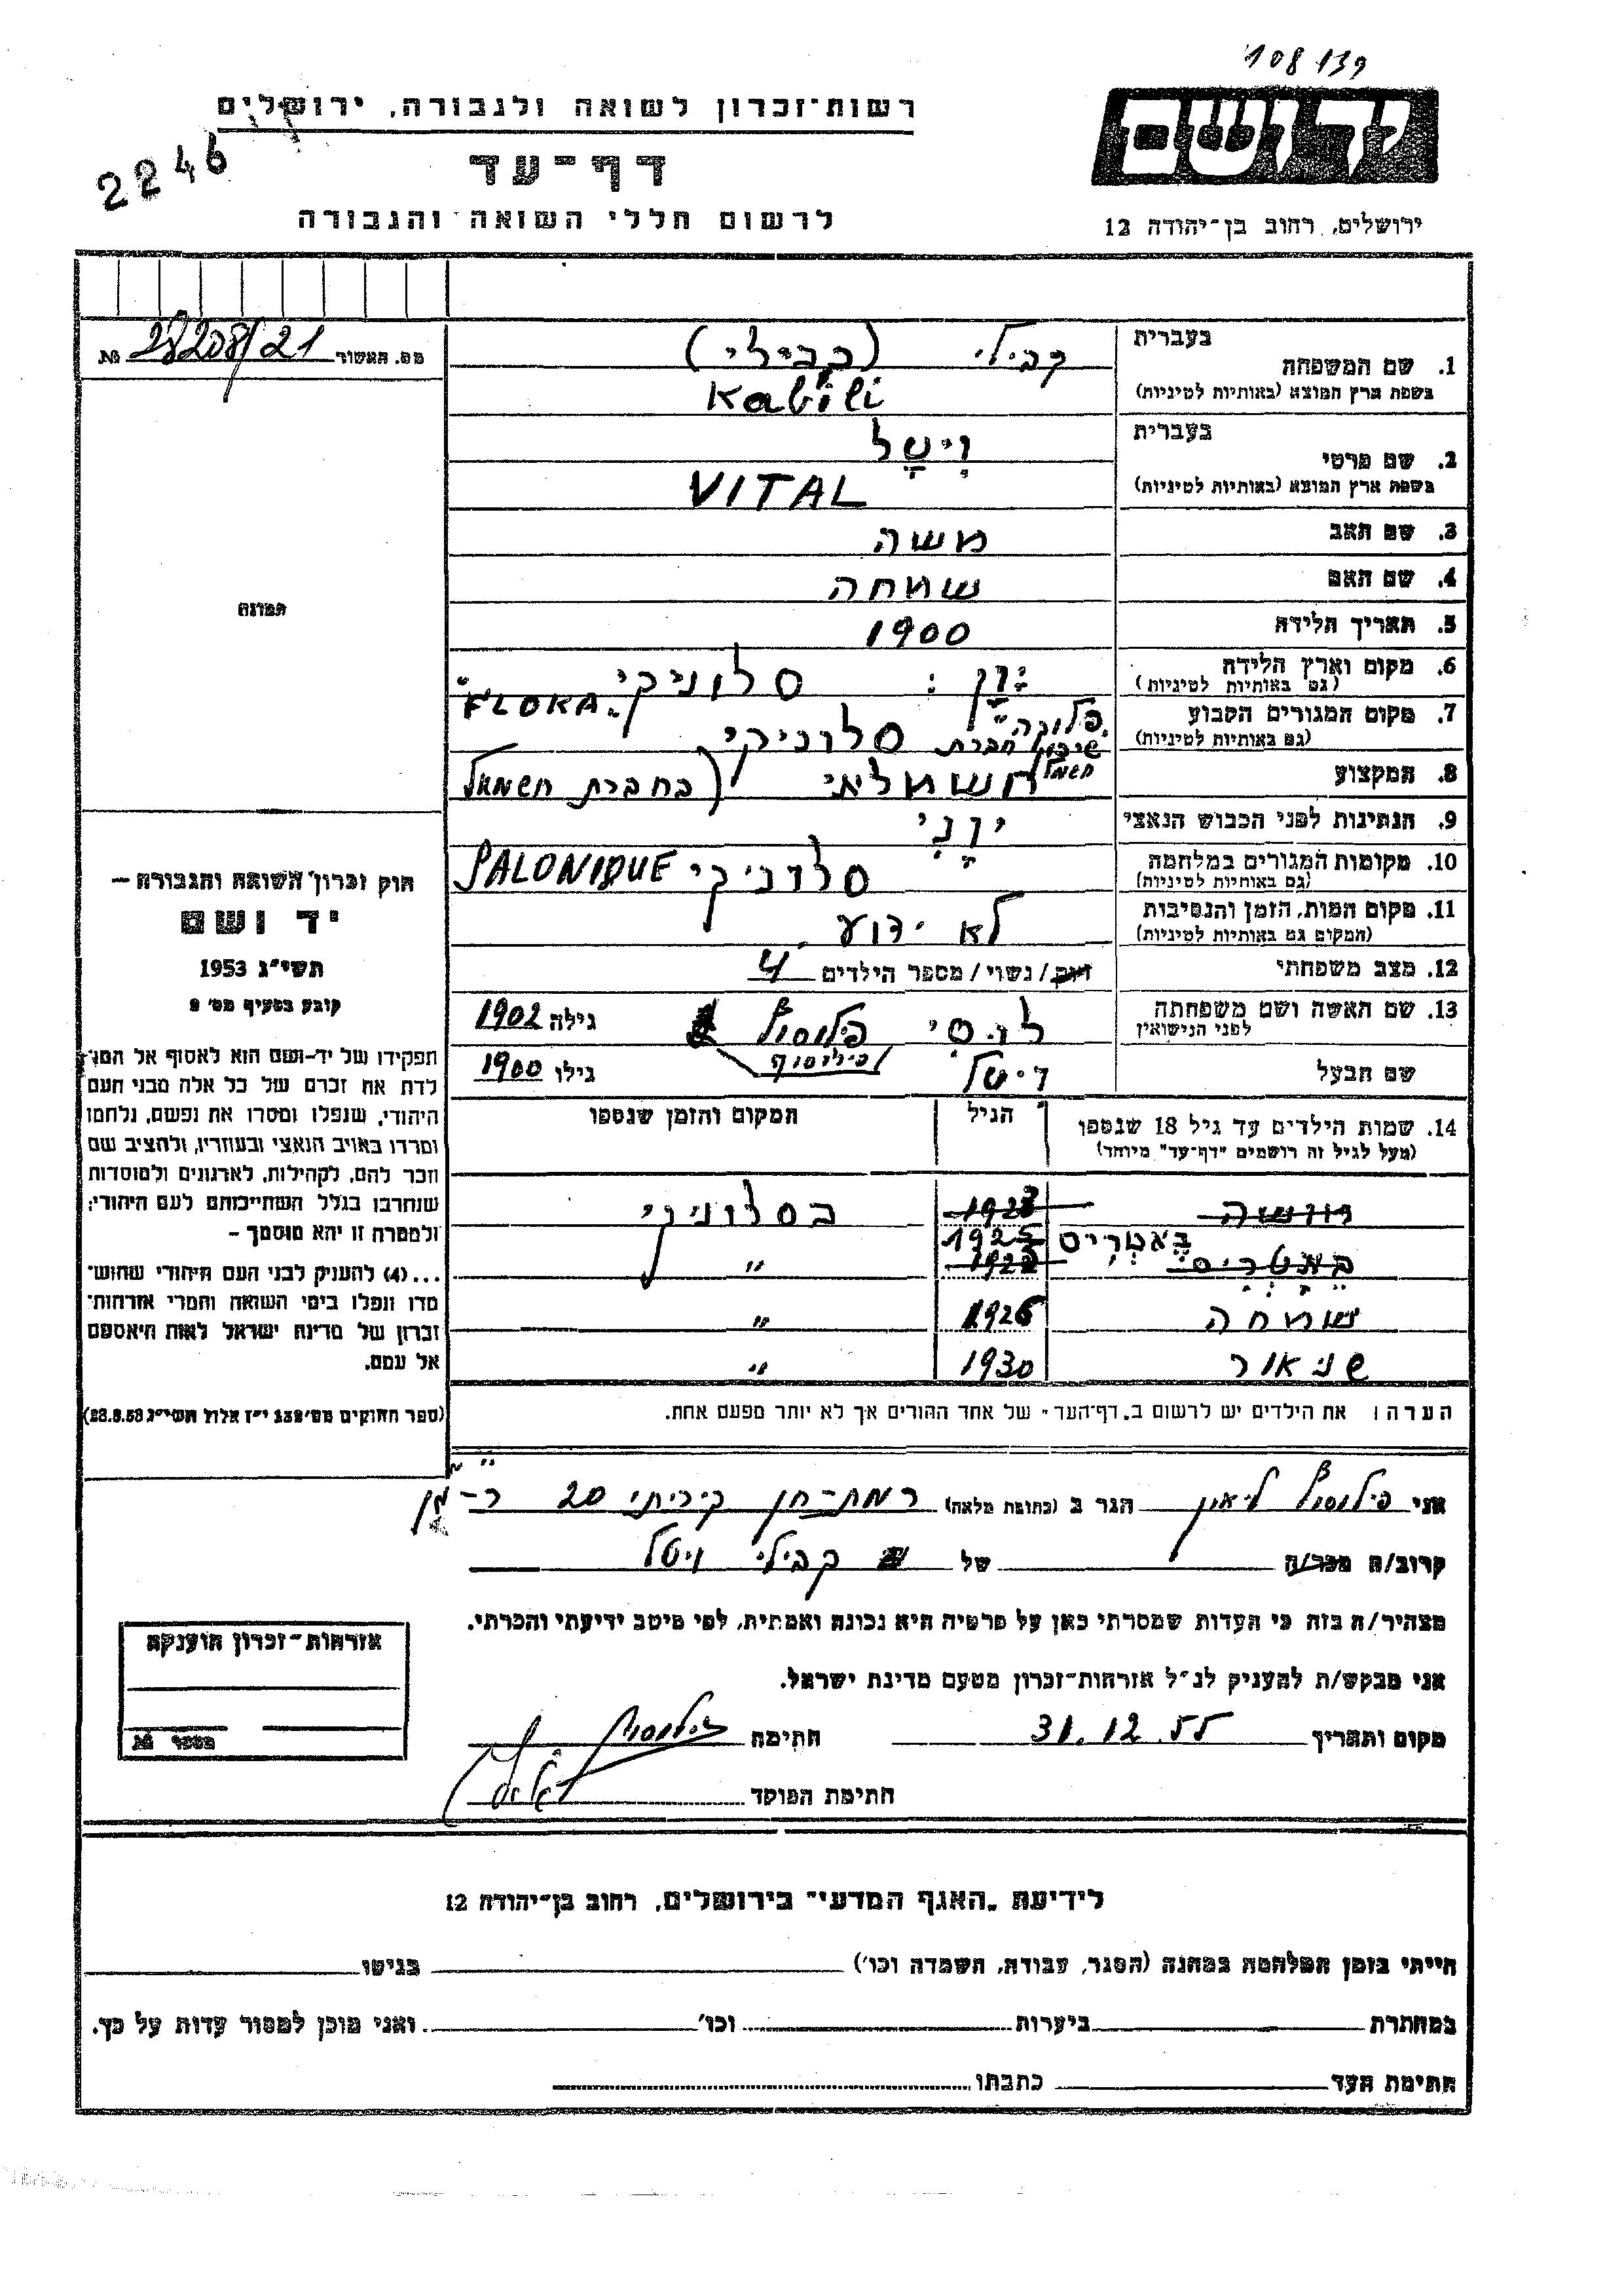 108139
רשות־זכרון לשואה ולגבורה, ירושלים
2246
ידושם
דף־עד
לרשום חללי השואה והגבורה
ירושלים, רחוב בן־יהודה 12
מס. האשור 28208/21 №
בעברית
1. שם המשפחה קבילי (כבילי)
בשפת ארץ המוצא (באותיות לטיניות) Kabili
בעברית
2. שם פרטי ויטל
בשפת ארץ המוצא (באותיות לטיניות) VITAL
3. שם האב משה
4. שם האם שמחה
תמונה
5. תאריך הלידה 1900
6. מקום וארץ הלידה יון : סלוניקי
(גם באותיות לטיניות)
7. מקום המגורים הקבוע סלוניקי "FLOKA" "פלוקה"
(גם באותיות לטיניות) שיכון חברת חשמל
8. המקצוע חשמלאי (בחברת חשמאל
9. הנתינות לפני הכבוש הנאצי יוני
10. מקומות המגורים במלחמה סלוניקי SALONIQUE
(גם באותיות לטיניות)
11. מקום המות, הזמן והנסיבות לא ידוע
(המקום גם באותיות לטיניות)
12. מצב משפחתי רווק / נשוי / מספר הילדים 4
13. שם האשה ושם משפחתה לוסי פילוסוף גילה 1902
לפני הנישואין (פילוסוף
שם הבעל ויטל גילו 1900
14. שמות הילדים עד גיל 18 שנספו הגיל המקום והזמן שנספו
(מעל לגיל זה רושמים "דף־עד" מיוחד)
1923 בסלוניקי
באטריס 1925
באטריס 1928 "
שמחה 1926 "
שניאור 1930 "
הערה: את הילדים יש לרשום ב„דף־העד" של אחד ההורים אך לא יותר מפעם אחת.
חוק זכרון השואה והגבורה —
יד ושם
תשי״ג 1953
קובע בסעיף מס׳ 2
תפקידו של יד־ושם הוא לאסוף אל המו־
לדת את זכרם של כל אלה מבני העם
היהודי, שנפלו ומסרו את נפשם, נלחמו
ומרדו באויב הנאצי ובעוזריו, ולהציב שם
וזכר להם, לקהילות, לארגונים ולמוסדות
שנחרבו בגלל השתייכותם לעם היהודי;
ולמטרה זו יהא מוסמך —
...(4) להעניק לבני העם היהודי שהוש־
מדו ונפלו בימי השואה והמרי אזרחות־
זכרון של מדינת ישראל לאות היאספם
אל עמם.
(ספר החוקים מס׳ 132 י״ז אלול תשי״ג 28.8.53)
אני פילוסוף ליאון הגר ב (כתובת מלאה) רמת־חן קיריתי 20 ר־גן
קרוב/ה מכר/ה של קבילי ויטל
מצהיר/ה בזה כי העדות שמסרתי כאן על פרטיה היא נכונה ואמתית, לפי מיטב ידיעתי והכרתי.
אני מבקש/ת להעניק לנ״ל אזרחות־זכרון מטעם מדינת ישראל.
אזרחות־זכרון הוענקה
מספר №
מקום ותאריך 31.12.55 חתימה פילוסוף
חתימת הפוקד
לידיעת „האגף המדעי" בירושלים, רחוב בן־יהודה 12
הייתי בזמן המלחמה במחנה (הסגר, עבודה, השמדה וכו׳) בגיטו
במחתרת ביערות וכו׳ ואני מוכן למסור עדות על כך.
חתימת העד כתבתו